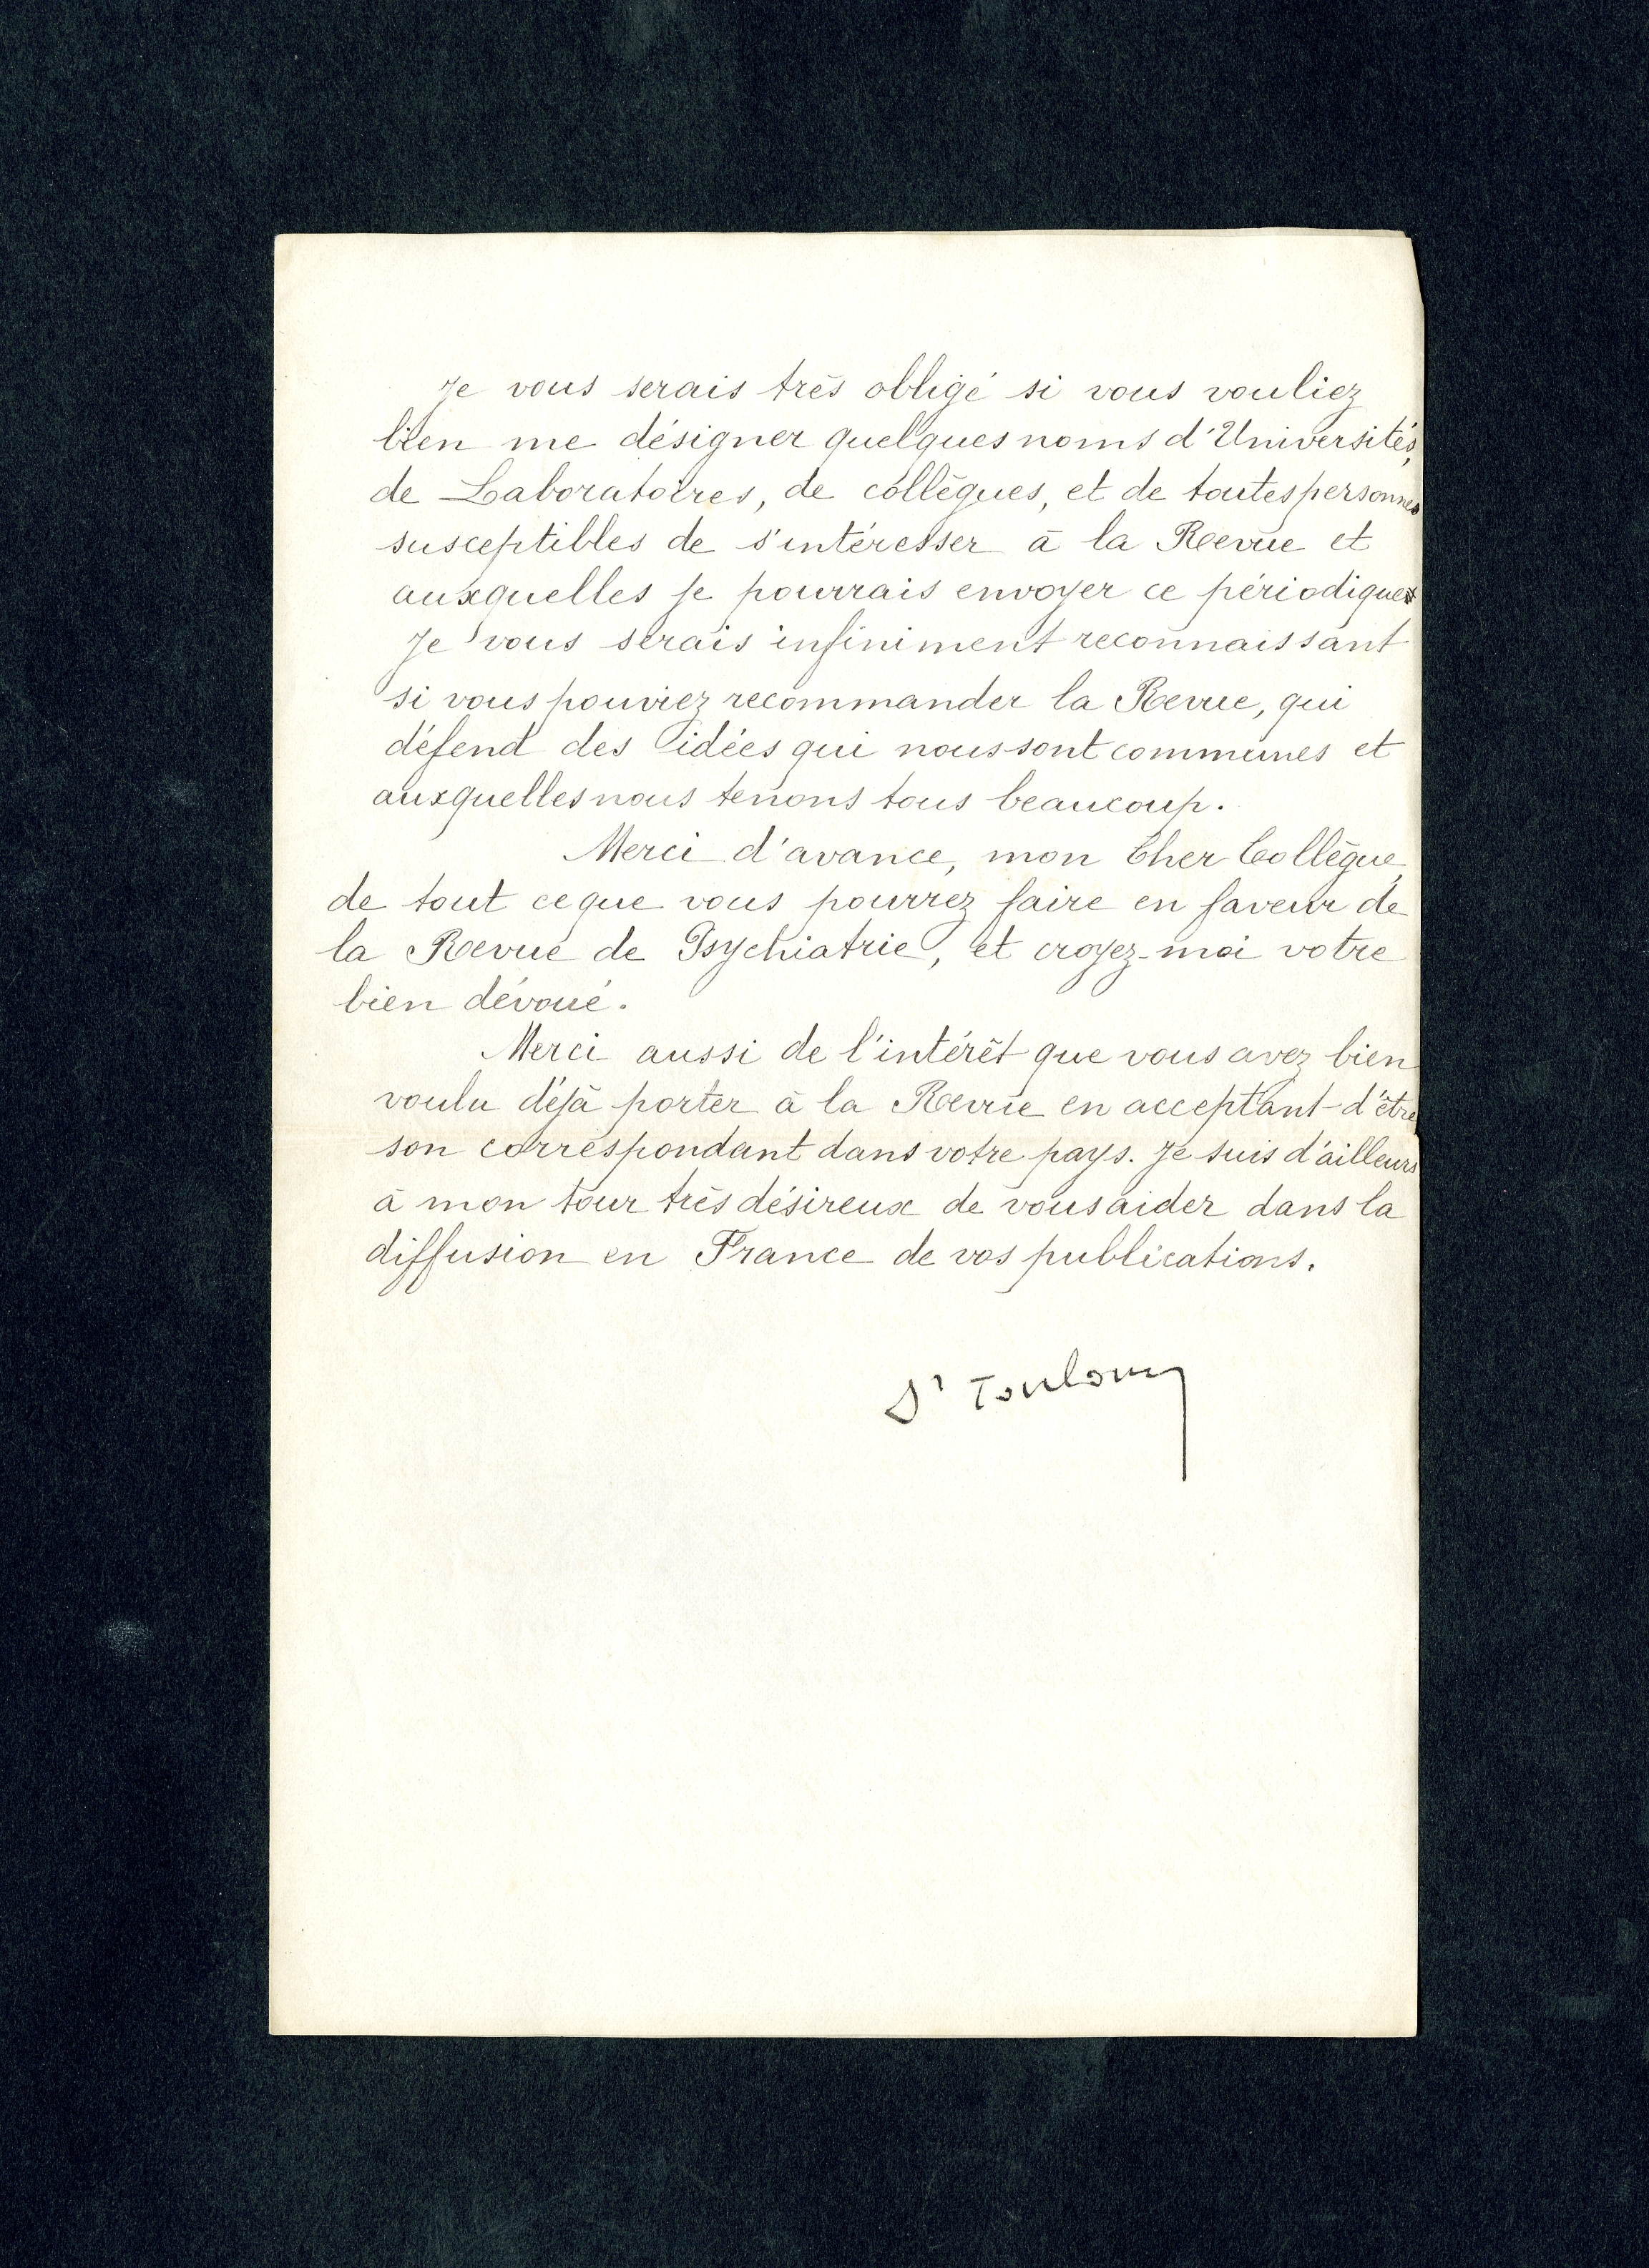 Je vous serais très obligé si vous vouliez
bien me désigner quelques noms d'Universités,
de Laboratoires, de collègues, et de toutes personnes
susceptibles de s'intéresser à la Revue et
auxquelles je pourrais envoyer ce périodique
Je vous serais infiniment reconnaissant
si vous pouviez recommander la Revue, qui
défend des idées qui nous sont communes et
auxquelles nous tenons tous beaucoup.
Merci d'avance, mon Cher Collègue,
de tout ce que vous pourrez faire en faveur de
la Revue de Psychiatrie, et croyez-moi votre
bien dévoué.
Merci aussi de l'intérêt que vous avez bien
voulu déjà porter à la Revue en acceptant d'être
son correspondant dans votre pays. Je suis d'ailleurs
à mon tour très désireux de vous aider dans la
diffusion en France de vos publications.
Dr Toulouse